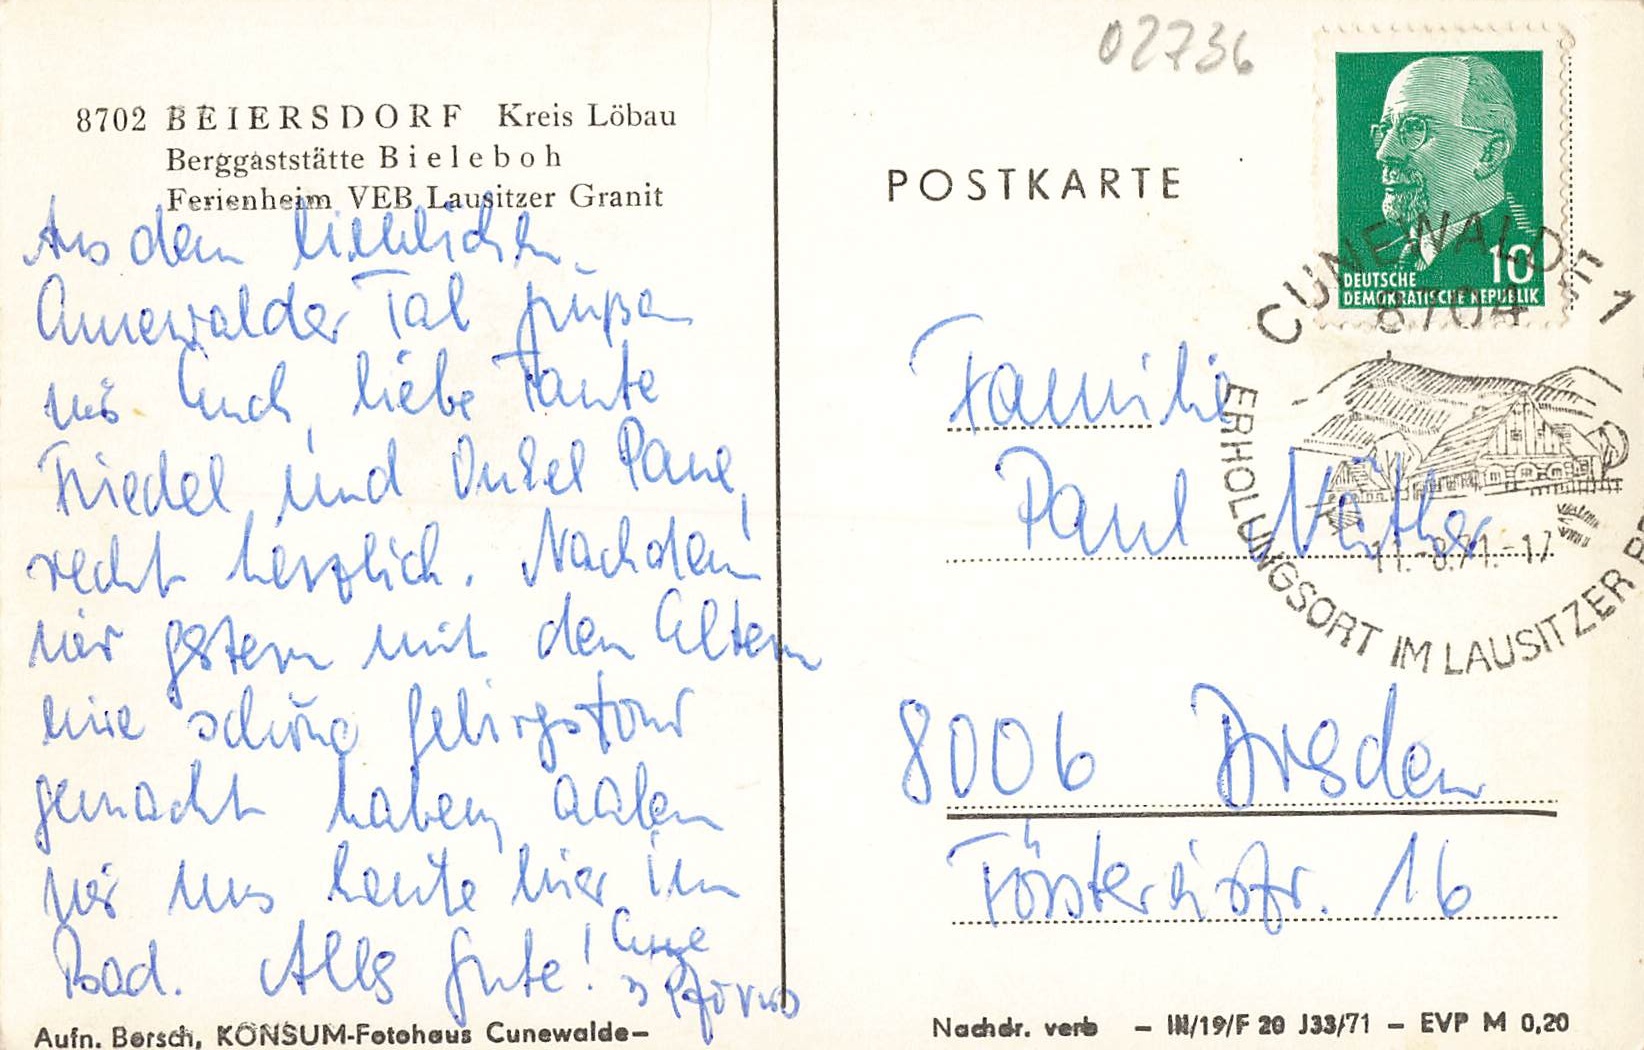 8702 BEIERSDORF Kreis Löbau
Berggaststätte Bieleboh
Ferienheim VEB Lausitzer Granit
Aus dem lieblichen
Cunewalder Tal grüßen
wir Euch, liebe Tante
Friedel und Onkel Paul,
recht herzlich. Nachdem
wir gestern mit den Eltern
eine schöne Gebirgstour
gemacht haben, aalen
wir uns heute hier im
Bad. Alles Gute! Eure
Aufn. Bersch, KONSUM-Fotohaus Cunewalde-
02736
POSTKARTE
10
DEUTSCHE
DEMOKRATISCHE REPUBLIK
CUNEWALDE 1
8704
ERHOLUNGSORT IM LAUSITZER
11.-8.71.-17
Familie
Paul
8006 Dresden
Förstereistr. 16
Nachdr. verb - III/19/F 20 J33/71 - EVP M 0,20